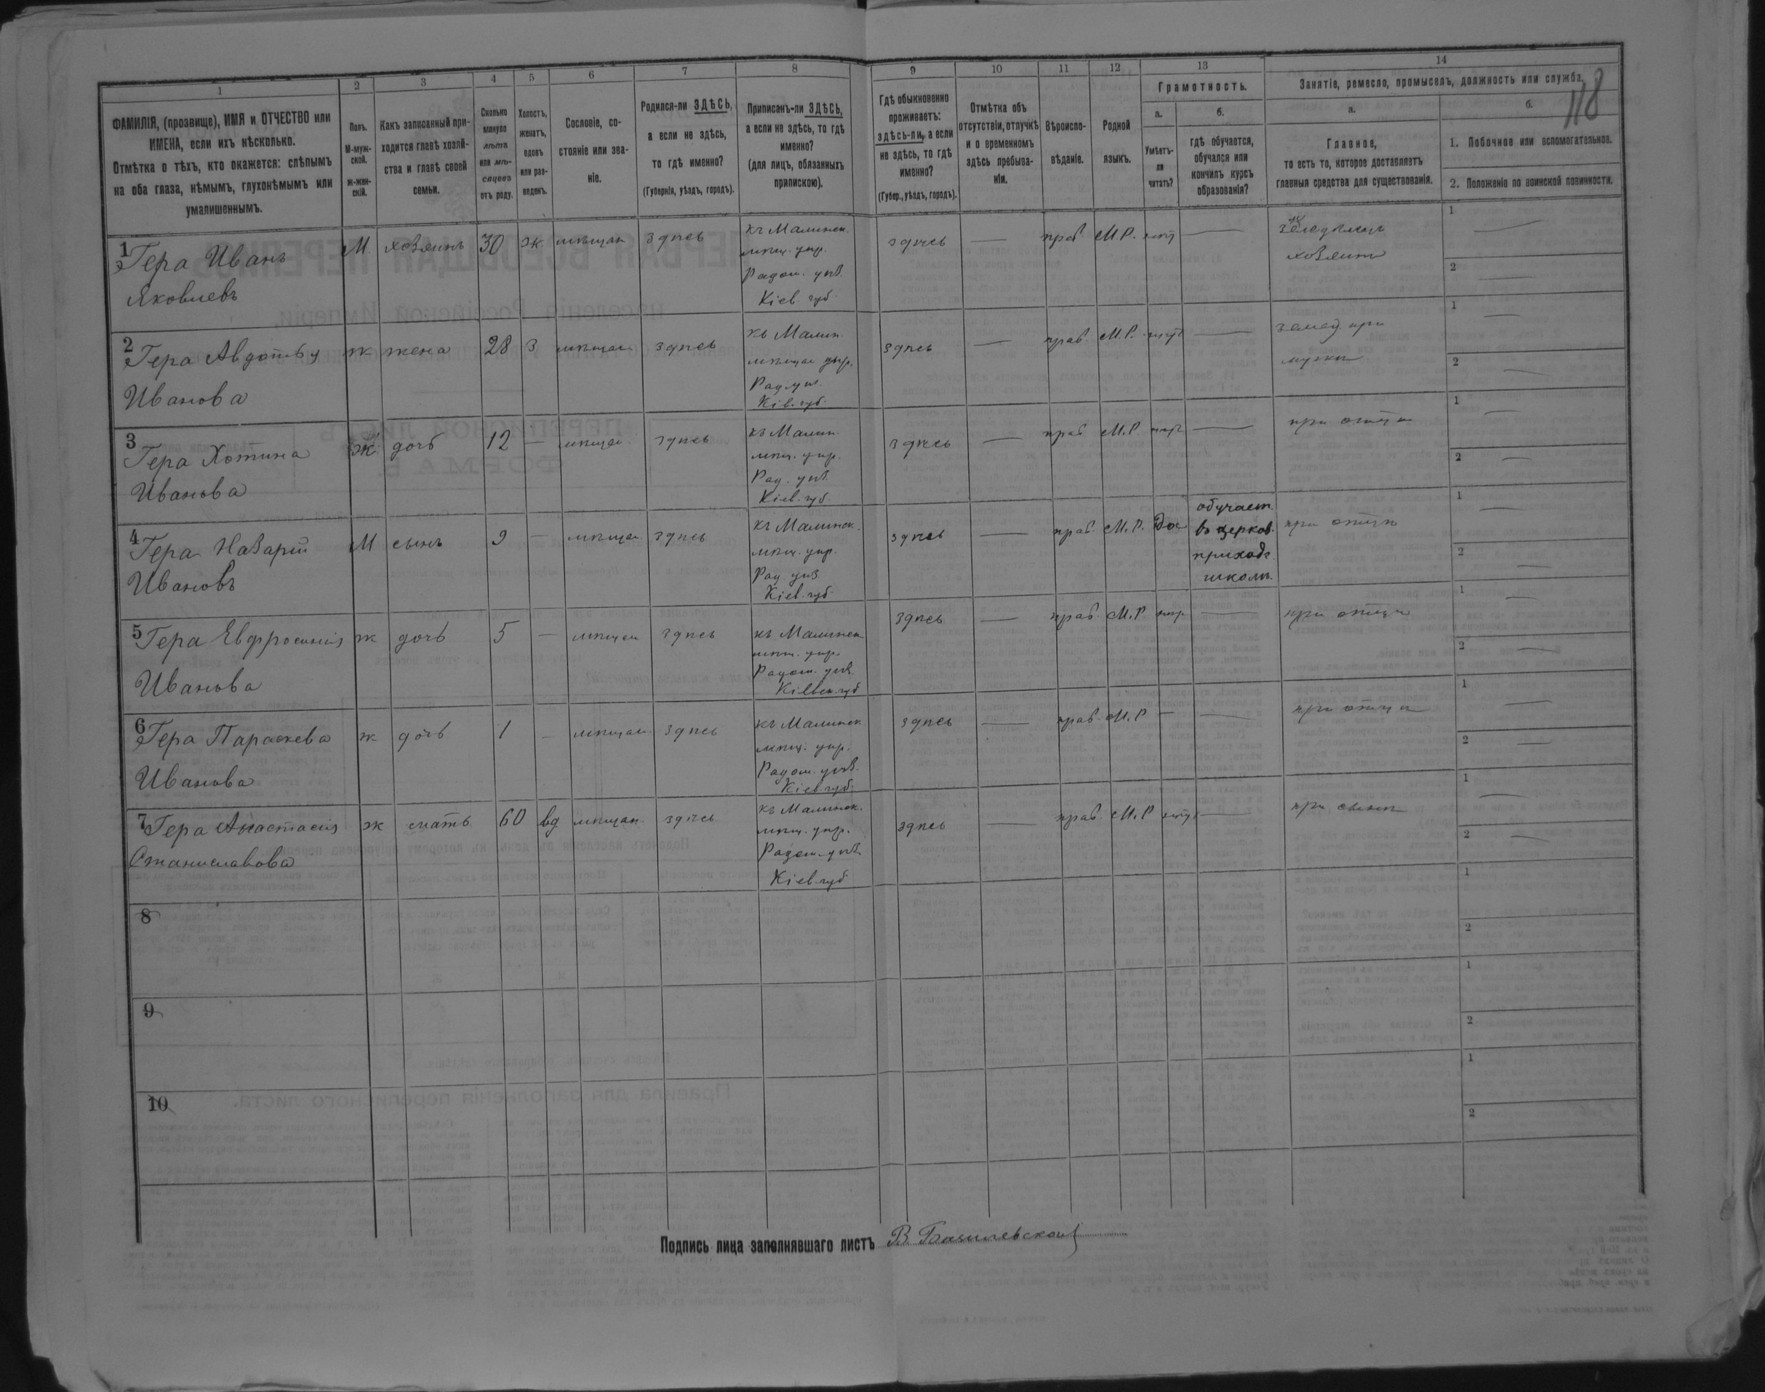 118
1 2 3 4 5 6 7 8 9 10 11 12 13 14
ФАМИЛІЯ, (прозвище), ИМЯ и ОТЧЕСТВО или
ИМЕНА, если ихъ нѣсколько.
Отмѣтка о тѣхъ, кто окажется: слѣпымъ
на оба глаза, нѣмымъ, глухонѣмымъ или
умалишеннымъ.
Полъ.
М-муж-
ской.
ж-жен-
скій.
Какъ записанный при-
ходится главѣ хозяй-
ства и главѣ своей
семьи.
Сколько
минуло
лѣтъ
или мѣ-
сяцевъ
отъ роду.
Холостъ,
женатъ,
вдовъ
или раз-
веденъ.
Сословіе, со-
стояніе или зва-
ніе.
Родился-ли ЗДѢСЬ,
а если не здѣсь,
то гдѣ именно?
(Губернія, уѣздъ, городъ).
Приписанъ-ли ЗДѢСЬ,
а если не здѣсь, то гдѣ
именно?
(для лицъ, обязанныхъ
припискою).
Гдѣ обыкновенно
проживаетъ:
здѣсь-ли, а если
не здѣсь, то гдѣ
именно?
(Губер., уѣздъ, городъ).
Отмѣтка объ
отсутствіи, отлучкѣ
и о временномъ
здѣсь пребыва-
ніи.
Вѣроиспо-
вѣданіе.
Родной
языкъ.
Грамотность.
а.
Умѣетъ-
ли
читать?
б.
гдѣ обучается,
обучался или
кончилъ курсъ
образованія?
Занятіе, ремесло, промыселъ, должность или служба.
а.
Главное,
то есть то, которое доставляетъ
главныя средства для существованія.
б.
1. Побочное или вспомогательное.
2. Положеніе по воинской повинности.
1 Гера Иванъ М хозяинъ 30 ж мѣщан здѣсь къ Малинск. здѣсь — прав М.Р. нѣтъ — 1 —
Яковлевъ мѣщ. упр. хозяинъ 2 —
Радом. уѣз.
Кіев. губ.
2 Гера Авдотья ж жена 28 з мѣщан здѣсь къ Малин. здѣсь — прав. М.Р. нѣтъ — при 1 —
Иванова мѣщан упр. мужѣ 2 —
Кіев. губ.
3 Гера Хотина ж дочь 12 — мѣщан здѣсь къ Малин. здѣсь — прав М.Р нѣтъ — при отцѣ 1 —
Иванова мѣщ. упр. 2 —
Рад. уѣз.
Кіев. губ.
4 Гера Назарій М сынъ 9 — мѣщан здѣсь къ Малинск. здѣсь — прав. М.Р. Да обучает. при отцѣ 1 —
Ивановъ мѣщ. упр. въ церков. 2 —
Рад. уѣз приход.
Кіев. губ школѣ.
5 Гера Евфросинія ж дочь 5 — мѣщан здѣсь къ Малинск здѣсь — прав. М.Р нѣт — при отцѣ 1 —
Иванова мѣщ. упр. 2 —
Радом. уѣз.
Кіевск губ
6 Гера Параскева ж дочь 1 — мѣщан здѣсь къ Малинск здѣсь — прав. М.Р — — при отцѣ 1 —
Иванова мѣщ. упр. 2 —
Радом. уѣз.
Кіев. губ.
7 Гера Анастасія ж мать 60 вд мѣщан. здѣсь къ Малинск. здѣсь — прав. М.Р нѣтъ — при сынѣ 1 —
Станиславова мѣщ. упр. 2 —
Радом. уѣз.
Кіев. губ
8 1
2
9 1
2
10 1
2
Подпись лица заполнявшаго листъ В.